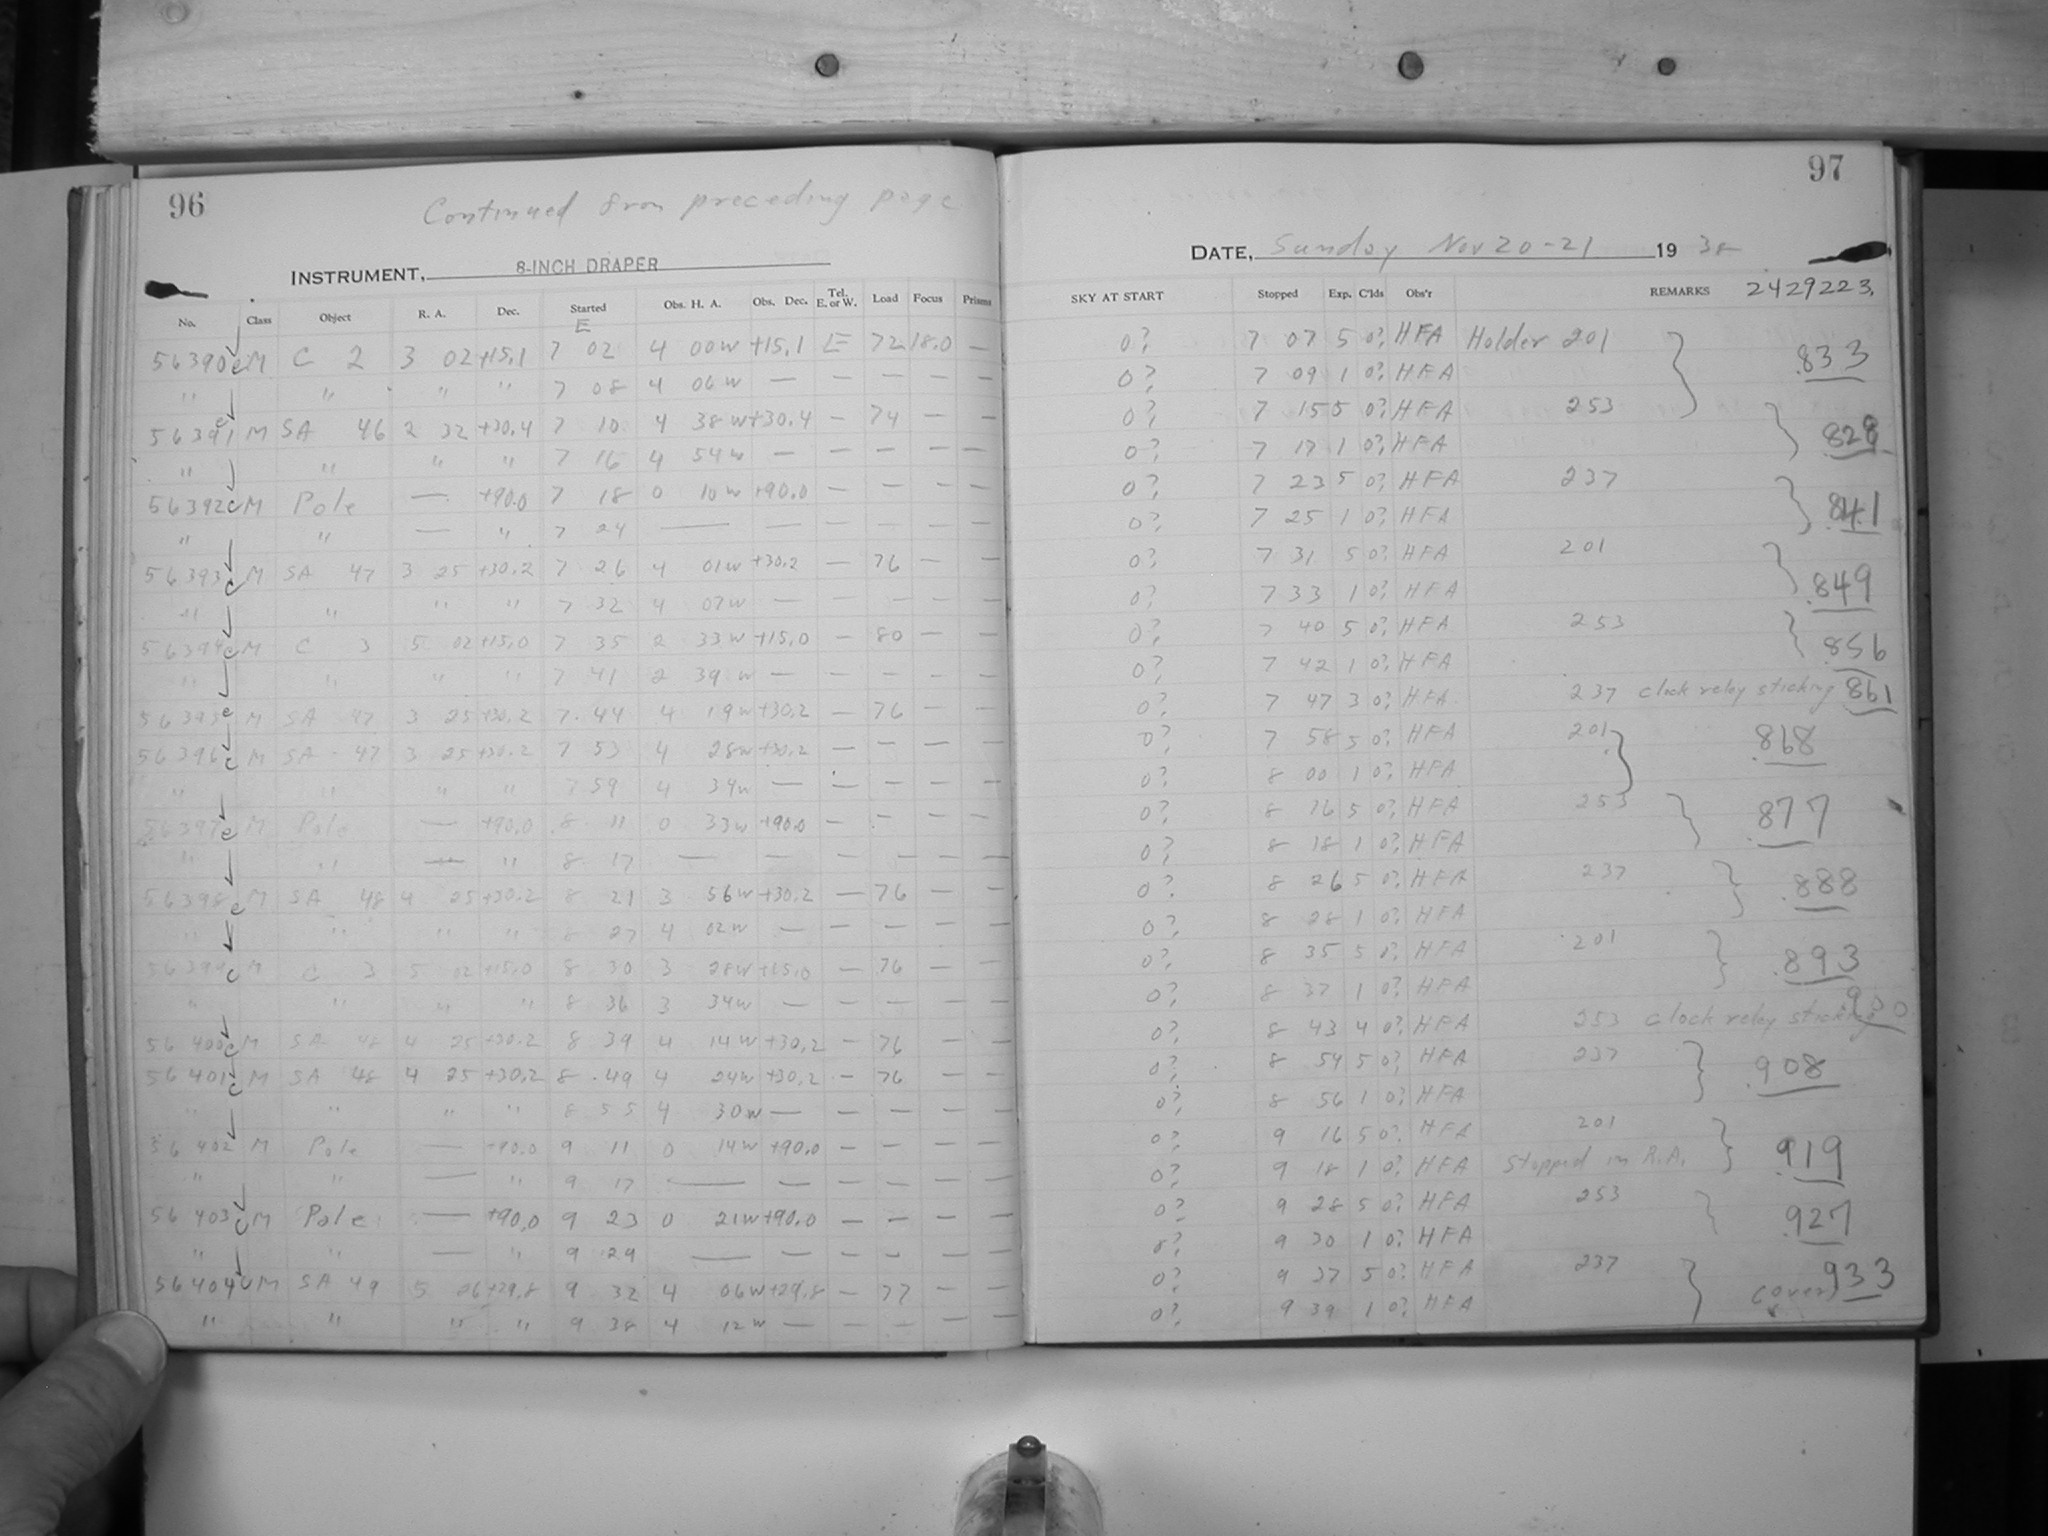 96
Continued from preceding page
INSTRUMENT, 8-INCH DRAPER
No. Class Object R. A. Dec. Started Obs. H. A. Obs. Dec. Tel. E. or W. Load Focus Prisms
E
56390 c M C 2 3 02 +15.1 7 02 4 00w +15.1 E 72 18.0 —
" " " " 7 08 4 06w — — — — —
56391 c M SA 46 2 32 +30.4 7 10 4 38w +30.4 — 74 — —
" " " " 7 16 4 54w — — — — —
56392 c M Pole — +90.0 7 18 0 10w +90.0 — — — —
" " — " 7 24 — — — — — —
56393 c M SA 47 3 25 +30.2 7 26 4 01w +30.2 — 76 — —
" " " " 7 32 4 07w — — — — —
56394 c M C 3 5 02 +15.0 7 35 2 33w +15.0 — 80 — —
" " " " 7 41 2 39w — — — — —
56395 c M SA 47 3 25 +30.2 7 44 4 19w +30.2 — 76 — —
56396 c M SA 47 3 25 +30.2 7 53 4 28w +30.2 — — — —
" " " " 7 59 4 34w — — — — —
56397 c M Pole — +90.0 8 11 0 33w +90.0 — — — —
" " — " 8 17 — — — — — —
56398 c M SA 48 4 25 +30.2 8 21 3 56w +30.2 — 76 — —
" " " " 8 27 4 02w — — — — —
56399 c M C 3 5 02 +15.0 8 30 3 28w +15.0 — 76 — —
" " " " 8 36 3 34w — — — — —
56400 c M SA 48 4 25 +30.2 8 39 4 14w +30.2 — 76 — —
56401 c M SA 48 4 25 +30.2 8 49 4 24w +30.2 — 76 — —
" " " " 8 55 4 30w — — — — —
56402 M Pole — +90.0 9 11 0 14w +90.0 — — — —
" " — " 9 17 — — — — — —
56403 c M Pole — +90.0 9 23 0 21w +90.0 — — — —
" " — " 9 29 — — — — — —
56404 c M SA 49 5 26 +29.8 9 32 4 06w +29.8 — 77 — —
" " " " 9 38 4 12w — — — — —
97
DATE, Sunday Nov 20-21 19 38
SKY AT START Stopped Exp. C'lds Obs'r REMARKS 2429223.
0? 7 07 5 0? HFA Holder 201 .833
0? 7 09 1 0? HFA
0? 7 15 5 0? HFA 253 .828
0? 7 17 1 0? HFA
0? 7 23 5 0? HFA 237 .841
0? 7 25 1 0? HFA
0? 7 31 5 0? HFA 201 .849
0? 7 33 1 0? HFA
0? 7 40 5 0? HFA 253 .856
0? 7 42 1 0? HFA
0? 7 47 3 0? HFA 237 clock relay sticking .861
0? 7 58 5 0? HFA 201 .868
0? 8 00 1 0? HFA
0? 8 16 5 0? HFA 253 .877
0? 8 18 1 0? HFA
0? 8 26 5 0? HFA 237 .888
0? 8 28 1 0? HFA
0? 8 35 5 0? HFA 201 .893
0? 8 37 1 0? HFA
0? 8 43 4 0? HFA 253 clock relay sticking 900
0? 8 54 5 0? HFA 237 .908
0? 8 56 1 0? HFA
0? 9 16 5 0? HFA 201 .919
0? 9 18 1 0? HFA Stopped in R.A.
0? 9 28 5 0? HFA 253 .927
0? 9 30 1 0? HFA
0? 9 37 5 0? HFA 237 .933
0? 9 39 1 0? HFA (over)